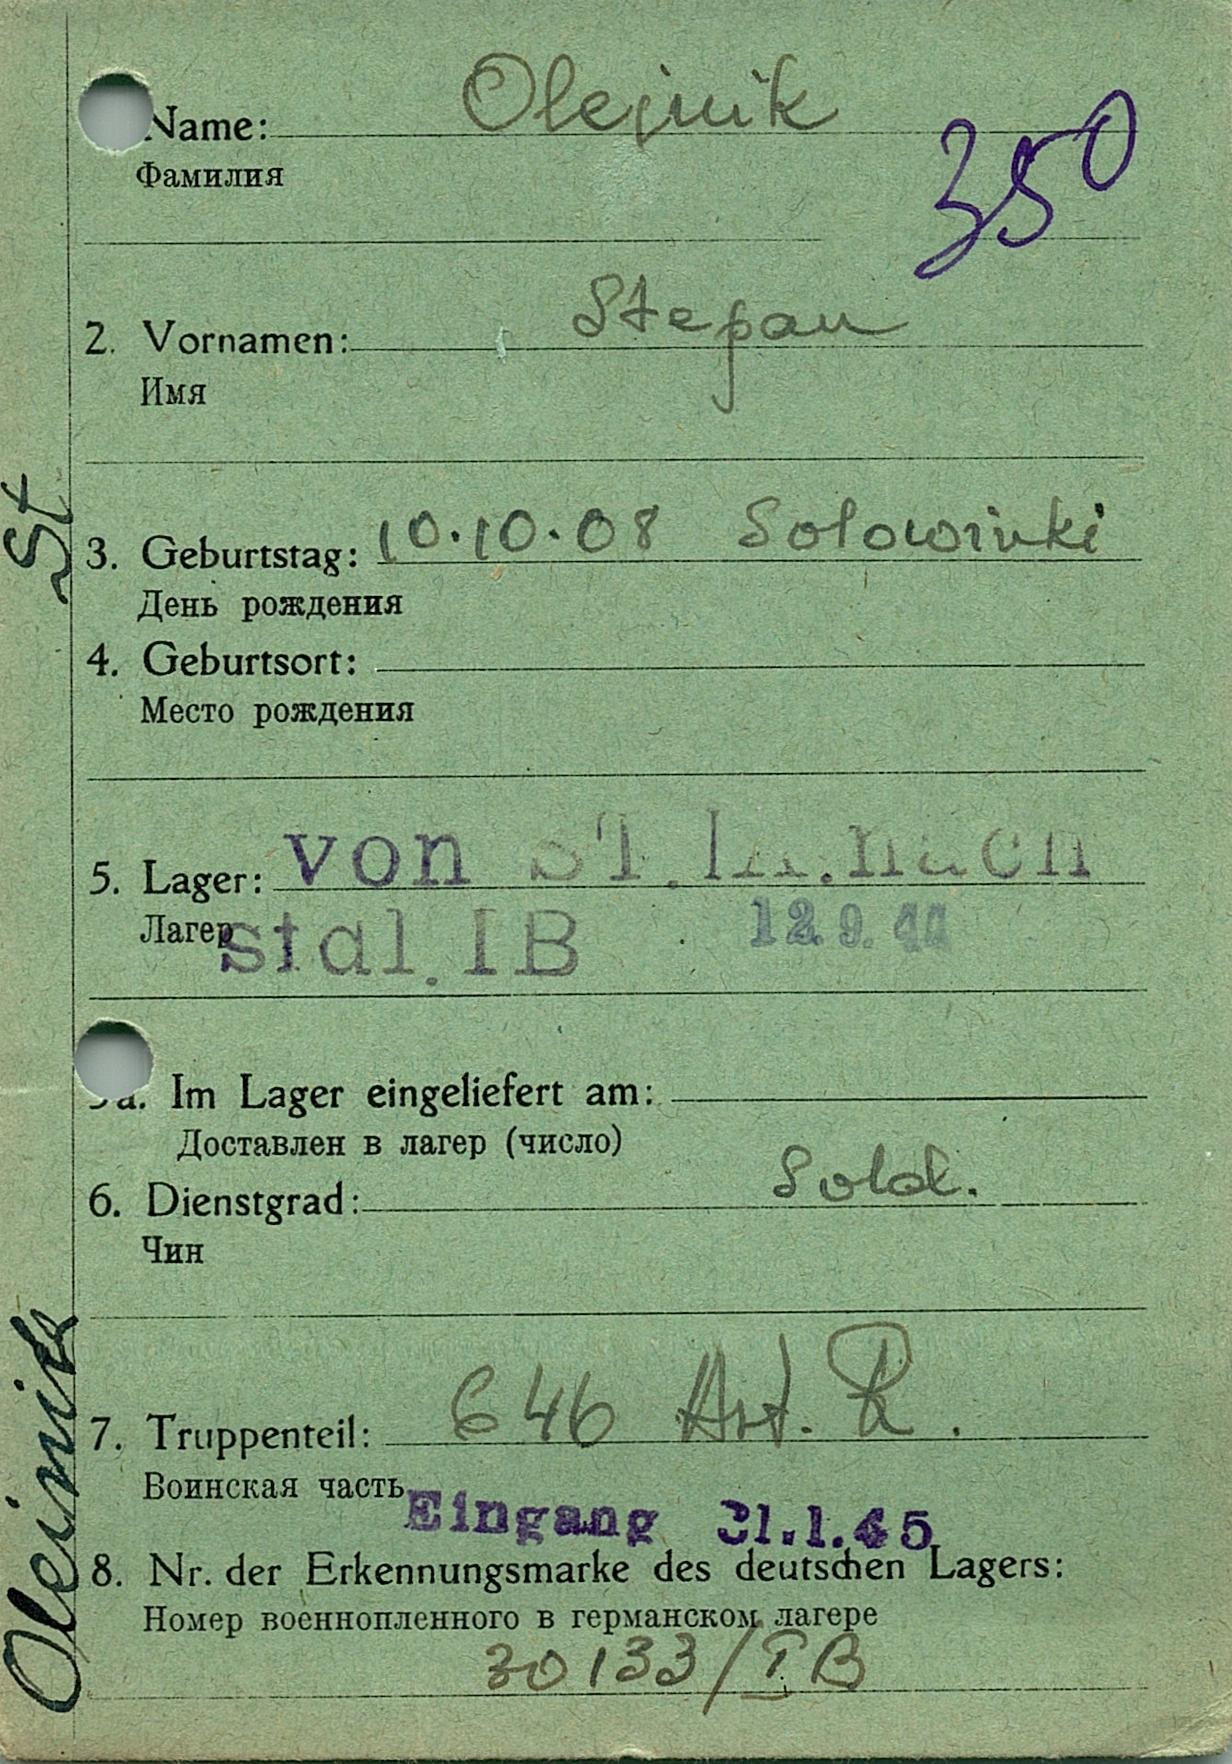 Name: Olejnik
Фамилия
350
2. Vornamen: Stepan
Имя
3. Geburtstag: 10.10.08 Solowinki
День рождения
4. Geburtsort:
Место рождения
5. Lager: von ST. nach
Лагер
stal. IB 12.9.44
a. Im Lager eingeliefert am:
Доставлен в лагер (число)
6. Dienstgrad: Sold.
Чин
7. Truppenteil: 646 Art. R.
Воинская часть
Eingang 31.1.45
8. Nr. der Erkennungsmarke des deutschen Lagers:
Номер военнопленного в германском лагере
30133/IB
Oleinik St